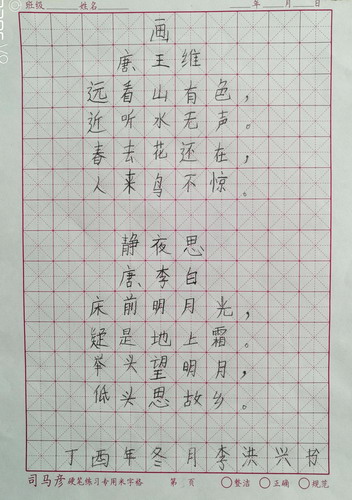 班级 姓名 年 月 日
画
唐 王维
远看山有色，
近听水无声。
春去花还在，
人来鸟不惊。
静夜思
唐 李白
床前明月光，
疑是地上霜。
举头望明月，
低头思故乡。
丁酉年冬月李洪兴书
司马彦硬笔练习专用米字格 第 页 ○整洁 ○正确 ○规范